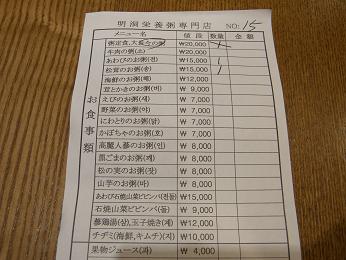 明洞栄養粥専門店 NO: 15
メニュー名 値段 数量 金額
₩20,000
牛肉の粥 ₩20,000
あわびのお粥(전) ₩15,000 1
松茸のお粥(송) ₩15,000 1
海鮮のお粥(해) ₩12,000
茸とかきのお粥(버) ₩ 9,000
えびのお粥(새) ₩ 7,000
野菜のお粥(야) ₩ 7,000
にわとりのお粥(닭) ₩ 7,000
かぼちゃのお粥(호) ₩ 7,000
高麗人蔘のお粥(인) ₩ 8,000
黒ごまのお粥(깨) ₩ 8,000
松の実のお粥(잣) ₩ 8,000
山芋のお粥(마) ₩ 8,000
あわび石焼山菜ビビンバ(전돌) ₩15,000
石焼山菜ビビンバ(돌) ₩ 9,000
蔘鶏湯(삼),玉子焼き(계) ₩12,000
チヂミ(海鮮,キムチ)(지) ₩10,000
果物ジュース(과) ₩ 4,000
お食事類